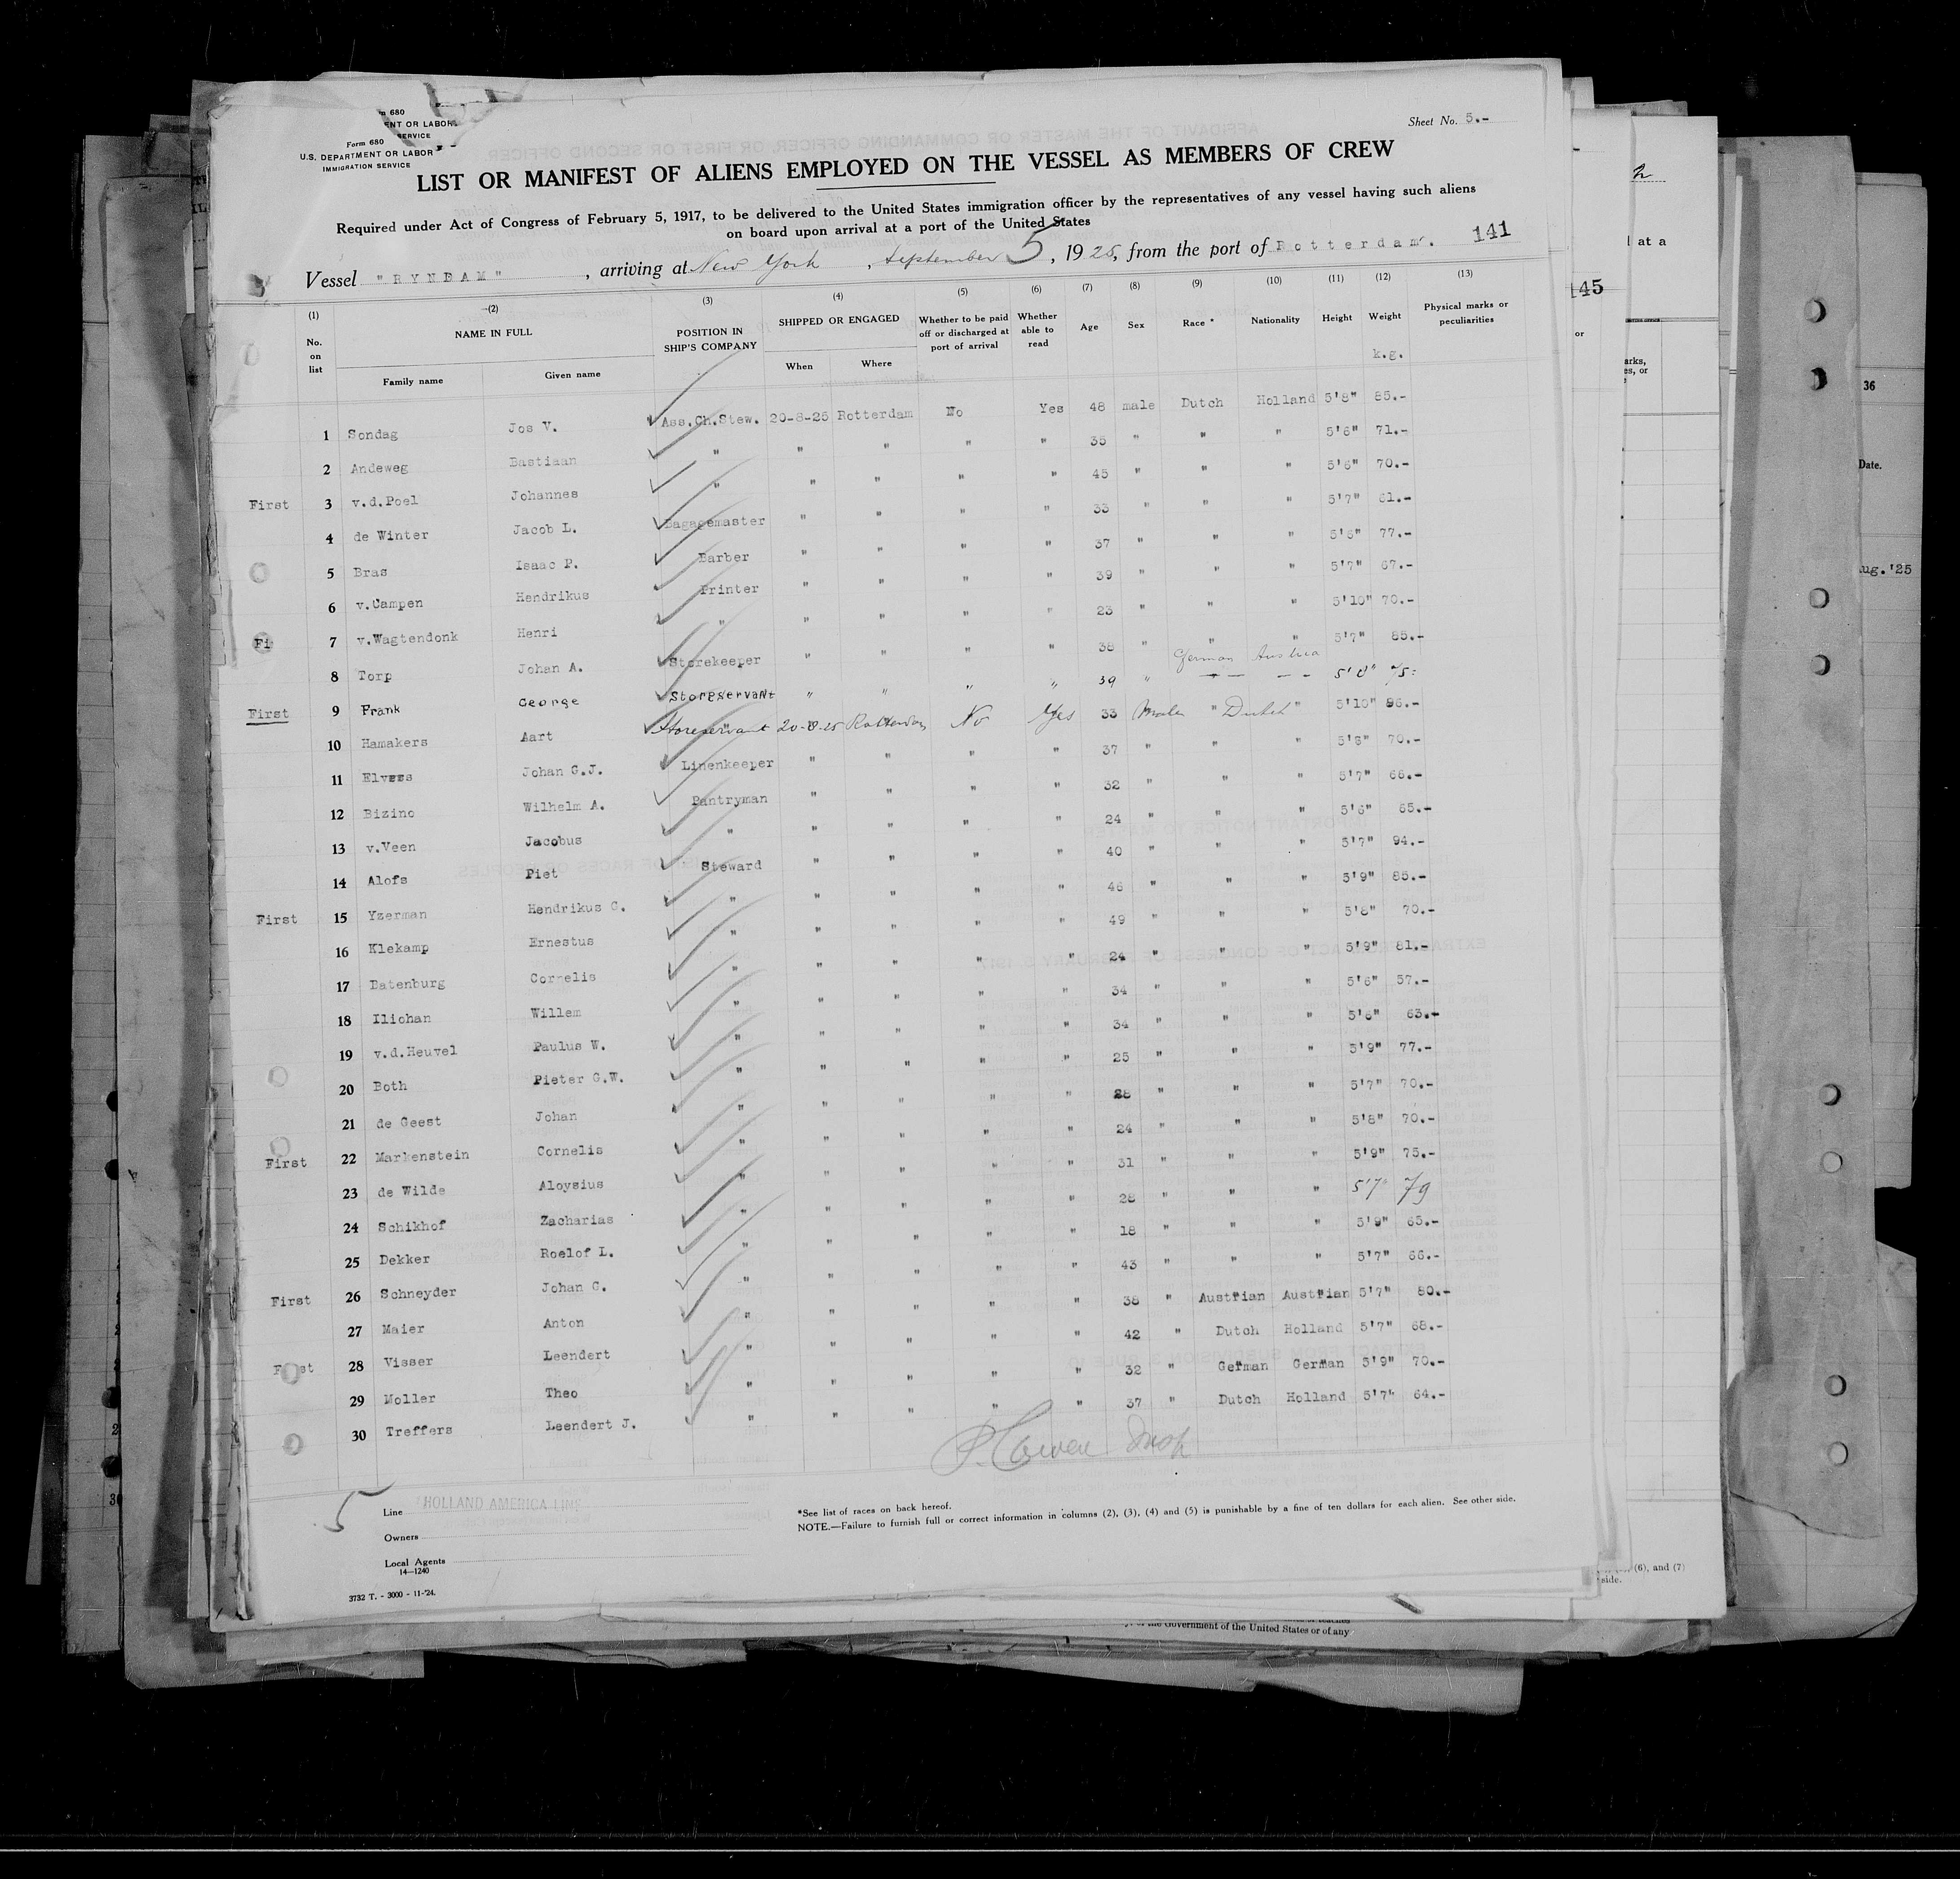 Form 680
U.S. DEPARTMENT OR LABOR
IMMIGRATION SERVICE
Sheet No. 5.-
LIST OR MANIFEST OF ALIENS EMPLOYED ON THE VESSEL AS MEMBERS OF CREW
Required under Act of Congress of February 5, 1917, to be delivered to the United States immigration officer by the representatives of any vessel having such aliens
on board upon arrival at a port of the United States
141
Vessel "RYNDAM", arriving at New York, September 5, 1925, from the port of Rotterdam.
(1) (2) (3) (4) (5) (6) (7) (8) (9) (10) (11) (12) (13)
No. on list NAME IN FULL POSITION IN SHIP'S COMPANY SHIPPED OR ENGAGED Whether to be paid off or discharged at port of arrival Whether able to read Age Sex Race * Nationality Height Weight Physical marks or peculiarities
Family name Given name When Where k.g.
1 Sondag Jos V. Ass.Ch.Stew. 20-8-25 Rotterdam No Yes 48 male Dutch Holland 5'8" 85.-
2 Andeweg Bastiaan " " " " " 35 " " " 5'6" 71.-
First 3 v.d.Poel Johannes " " " " " 45 " " " 5'6" 70.-
4 de Winter Jacob L. Bagagemaster " " " " 33 " " " 5'7" 61.-
5 Bras Isaac P. Barber " " " " 37 " " " 5'6" 77.-
6 v.Campen Hendrikus Printer " " " " 39 " " " 5'7" 67.-
Fi 7 v.Wagtendonk Henri " " " " " 23 " " " 5'10" 70.-
8 Torp Johan A. Storekeeper " " " " 38 " " " 5'7" 85.-
First 9 Frank George Storeservant " " " " 39 " German Austria 5'8" 75-
10 Hamakers Aart Storeservant 20-8-25 Rotterdam No Yes 33 Male " Dutch " 5'10" 96.-
11 Elvers Johan G.J. Linenkeeper " " " " 37 " " " 5'6" 70.-
12 Bizino Wilhelm A. Pantryman " " " " 32 " " " 5'7" 66.-
13 v.Veen Jacobus " " " " " 24 " " " 5'6" 65.-
14 Alofs Piet Steward " " " " 40 " " " 5'7" 94.-
First 15 Yzerman Hendrikus G. " " " " " 46 " " " 5'9" 85.-
16 Klekamp Ernestus " " " " " 49 " " " 5'8" 70.-
17 Batenburg Cornelis " " " " " 24 " " " 5'9" 81.-
18 Iliohan Willem " " " " " 34 " " " 5'6" 57.-
19 v.d.Heuvel Paulus W. " " " " " 34 " " " 5'6" 63.-
20 Both Pieter G.W. " " " " " 25 " " " 5'9" 77.-
21 de Geest Johan " " " " " 28 " " " 5'7" 70.-
First 22 Markenstein Cornelis " " " " " 24 " " " 5'8" 70.-
23 de Wilde Aloysius " " " " " 31 " " " 5'9" 75.-
24 Schikhof Zacharias " " " " " 28 " " " 5'7" 79
25 Dekker Roelof L. " " " " " 18 " " " 5'9" 65.-
First 26 Schneyder Johan G. " " " " " 43 " " " 5'7" 66.-
27 Maier Anton " " " " " 38 " Austrian Austrian 5'7" 80.-
First 28 Visser Leendert " " " " " 42 " Dutch Holland 5'7" 68.-
29 Moller Theo " " " " " 32 " German German 5'9" 70.-
30 Treffers Leendert J. " " " " " 37 " Dutch Holland 5'7" 64.-
5
Line HOLLAND AMERICA LINE
Owners
Local Agents
14—1240
3732 T. - 3000 - 11-'24.
*See list of races on back hereof.
NOTE.—Failure to furnish full or correct information in columns (2), (3), (4) and (5) is punishable by a fine of ten dollars for each alien. See other side.
145
at a
or
36
Date.
Aug.'25
(6), and (7)
side.
the Government of the United States or of any